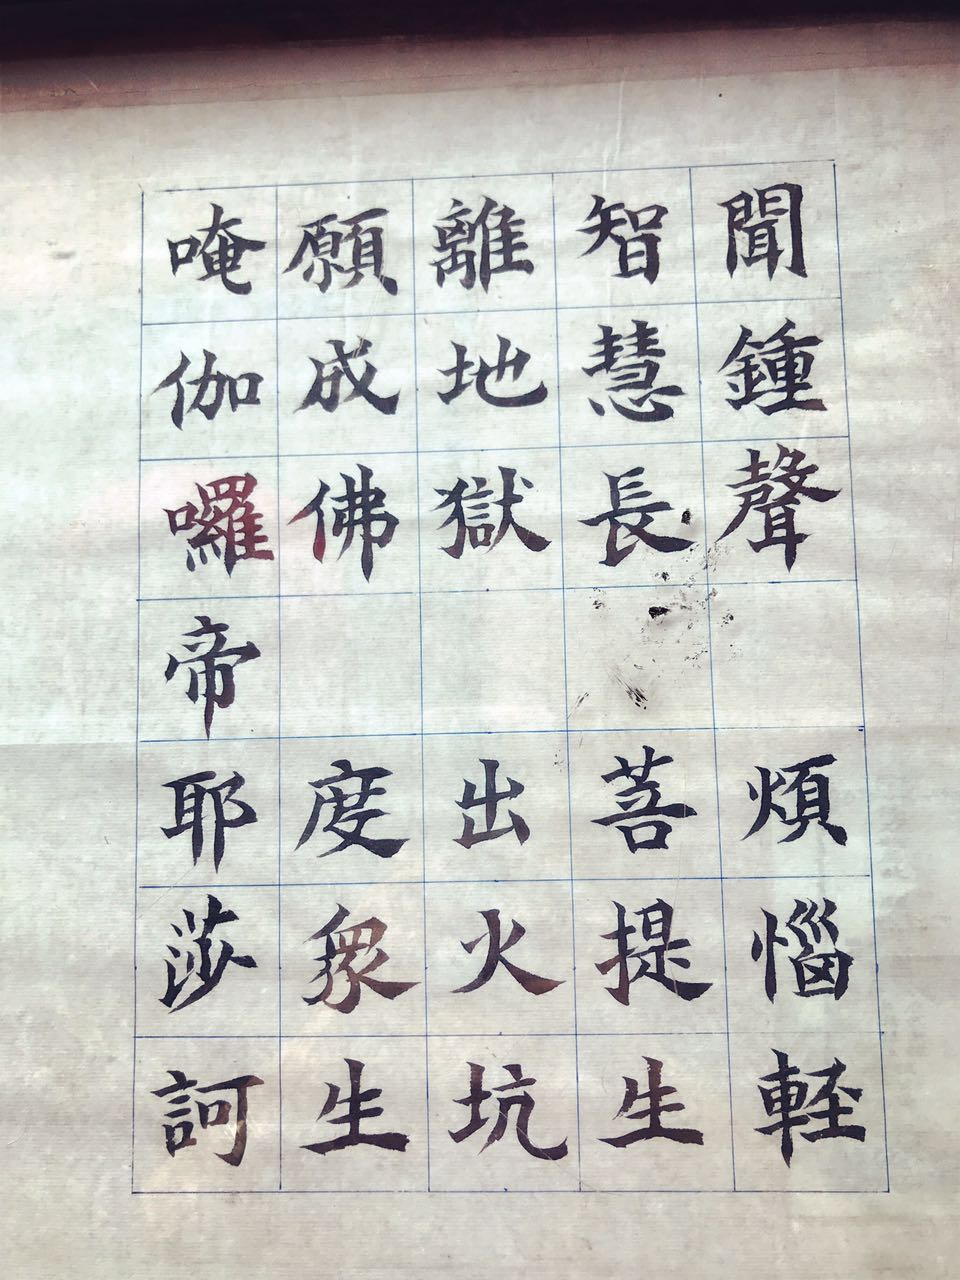 聞鍾聲 煩惱輊
智慧長 菩提生
離地獄 出火坑
願成佛 度眾生
唵伽囉帝耶莎訶